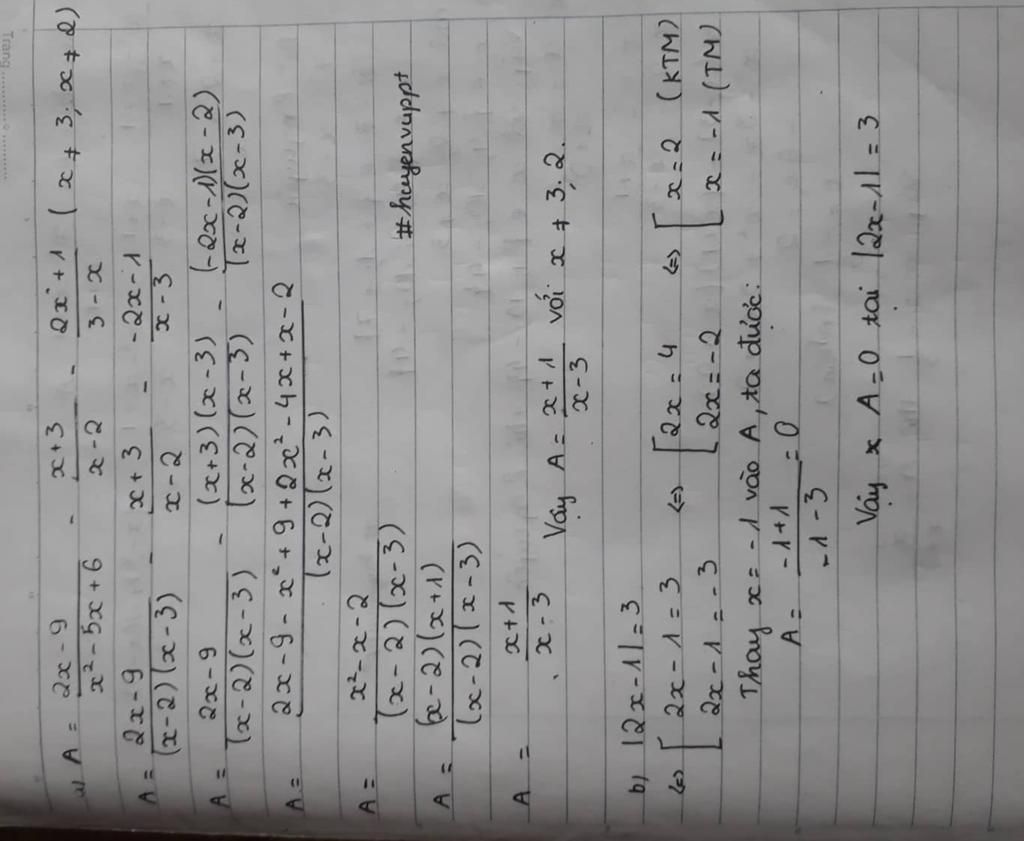 Trang
a) A = (2x - 9)/(x² - 5x + 6) - (x + 3)/(x - 2) - (2x + 1)/(3 - x) ( x ≠ 3; x ≠ 2)
A = (2x - 9)/((x - 2)(x - 3)) - (x + 3)/(x - 2) - (-2x - 1)/(x - 3)
A = (2x - 9)/((x - 2)(x - 3)) - ((x + 3)(x - 3))/((x - 2)(x - 3)) - ((-2x - 1)(x - 2))/((x - 2)(x - 3))
A = (2x - 9 - x² + 9 + 2x² - 4x + x - 2)/((x - 2)(x - 3))
A = (x² - x - 2)/((x - 2)(x - 3))
A = ((x - 2)(x + 1))/((x - 2)(x - 3)) #huyenvuppt
A = (x + 1)/(x - 3)
Vậy A = (x + 1)/(x - 3) với x ≠ 3; 2.
b) |2x - 1| = 3
(=) [ 2x - 1 = 3 (=) [ 2x = 4 (=) [ x = 2 (KTM)
2x - 1 = -3 2x = -2 x = -1 (TM)
Thay x = -1 vào A, ta được:
A = (-1 + 1)/(-1 - 3) = 0
Vậy A = 0 tại |2x - 1| = 3